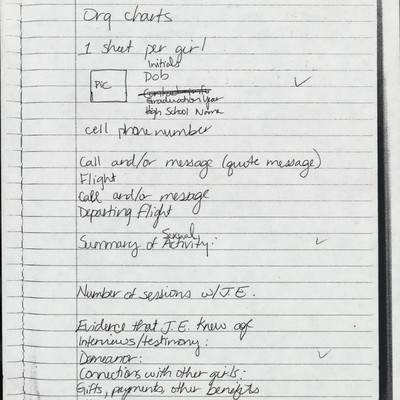 Org charts
1 sheet per girl
Initials
Pic
Dob
Contact Info
Graduation Year
High School Name
cell phone number
Call and/or message (quote message)
Flight
call and/or message
Departing flight
Sexual
Summary of Activity:
Number of sessions w/ J.E.
Evidence that J.E. knew age
Interviews/testimony:
Demeanor:
Connections with other girls:
Gifts, payments, other benefits